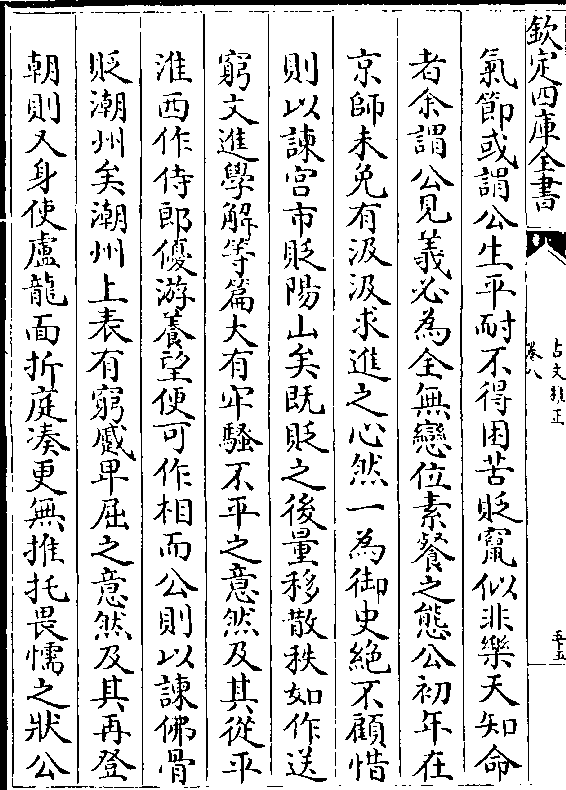 欽定四庫全書
古文雅正
卷八
五十五
氣節或謂公生平耐不得困苦貶竄似非樂天知命
者余謂公見義必為全無戀位素餐之態公初年在
京師未免有汲汲求進之心然一為御史絶不顧惜
則以諫宫市貶陽山矣既貶之後量移散秩如作送
窮文進學解等篇大有牢騷不平之意然及其從平
淮西作侍郎優游養望便可作相而公則以諫佛骨
貶潮州矣潮州上表有窮慼卑屈之意然及其再登
朝則又身使盧龍面折庭凑更無推托畏懦之狀公